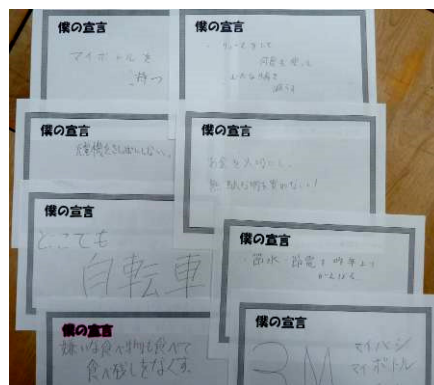 僕の宣言
マイボトルを
持つ
僕の宣言
僕の宣言
僕の宣言
お金を大切にし、
無駄な物を買わない!
僕の宣言
どこでも
自転車
僕の宣言
・節水・節電を昨年より
がんばる
僕の宣言
嫌いな食べ物も食べて
食べ残しをなくす
僕の宣言
3M
マイハシ
マイボトル